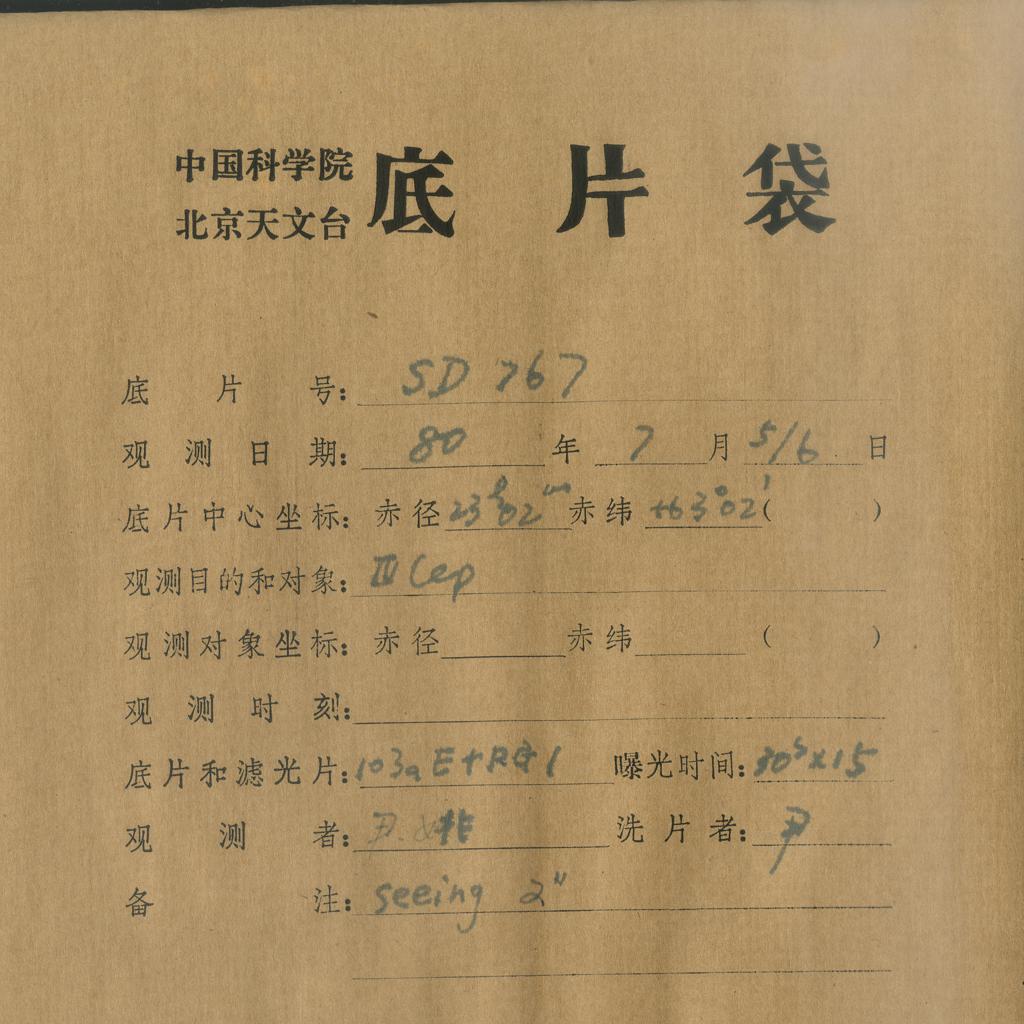 中国科学院
北京天文台
底片袋
底片号: SD 767
观测日期: 80 年 7 月 5/6 日
底片中心坐标: 赤径 23h02m 赤纬 +63°02′ ( )
观测目的和对象: III Cep
观测对象坐标: 赤径 赤纬 ( )
观测时刻:
底片和滤光片: 103aE+RG1 曝光时间: 30s×15
观测者: 尹. 洗片者: 尹
备注: seeing 2″